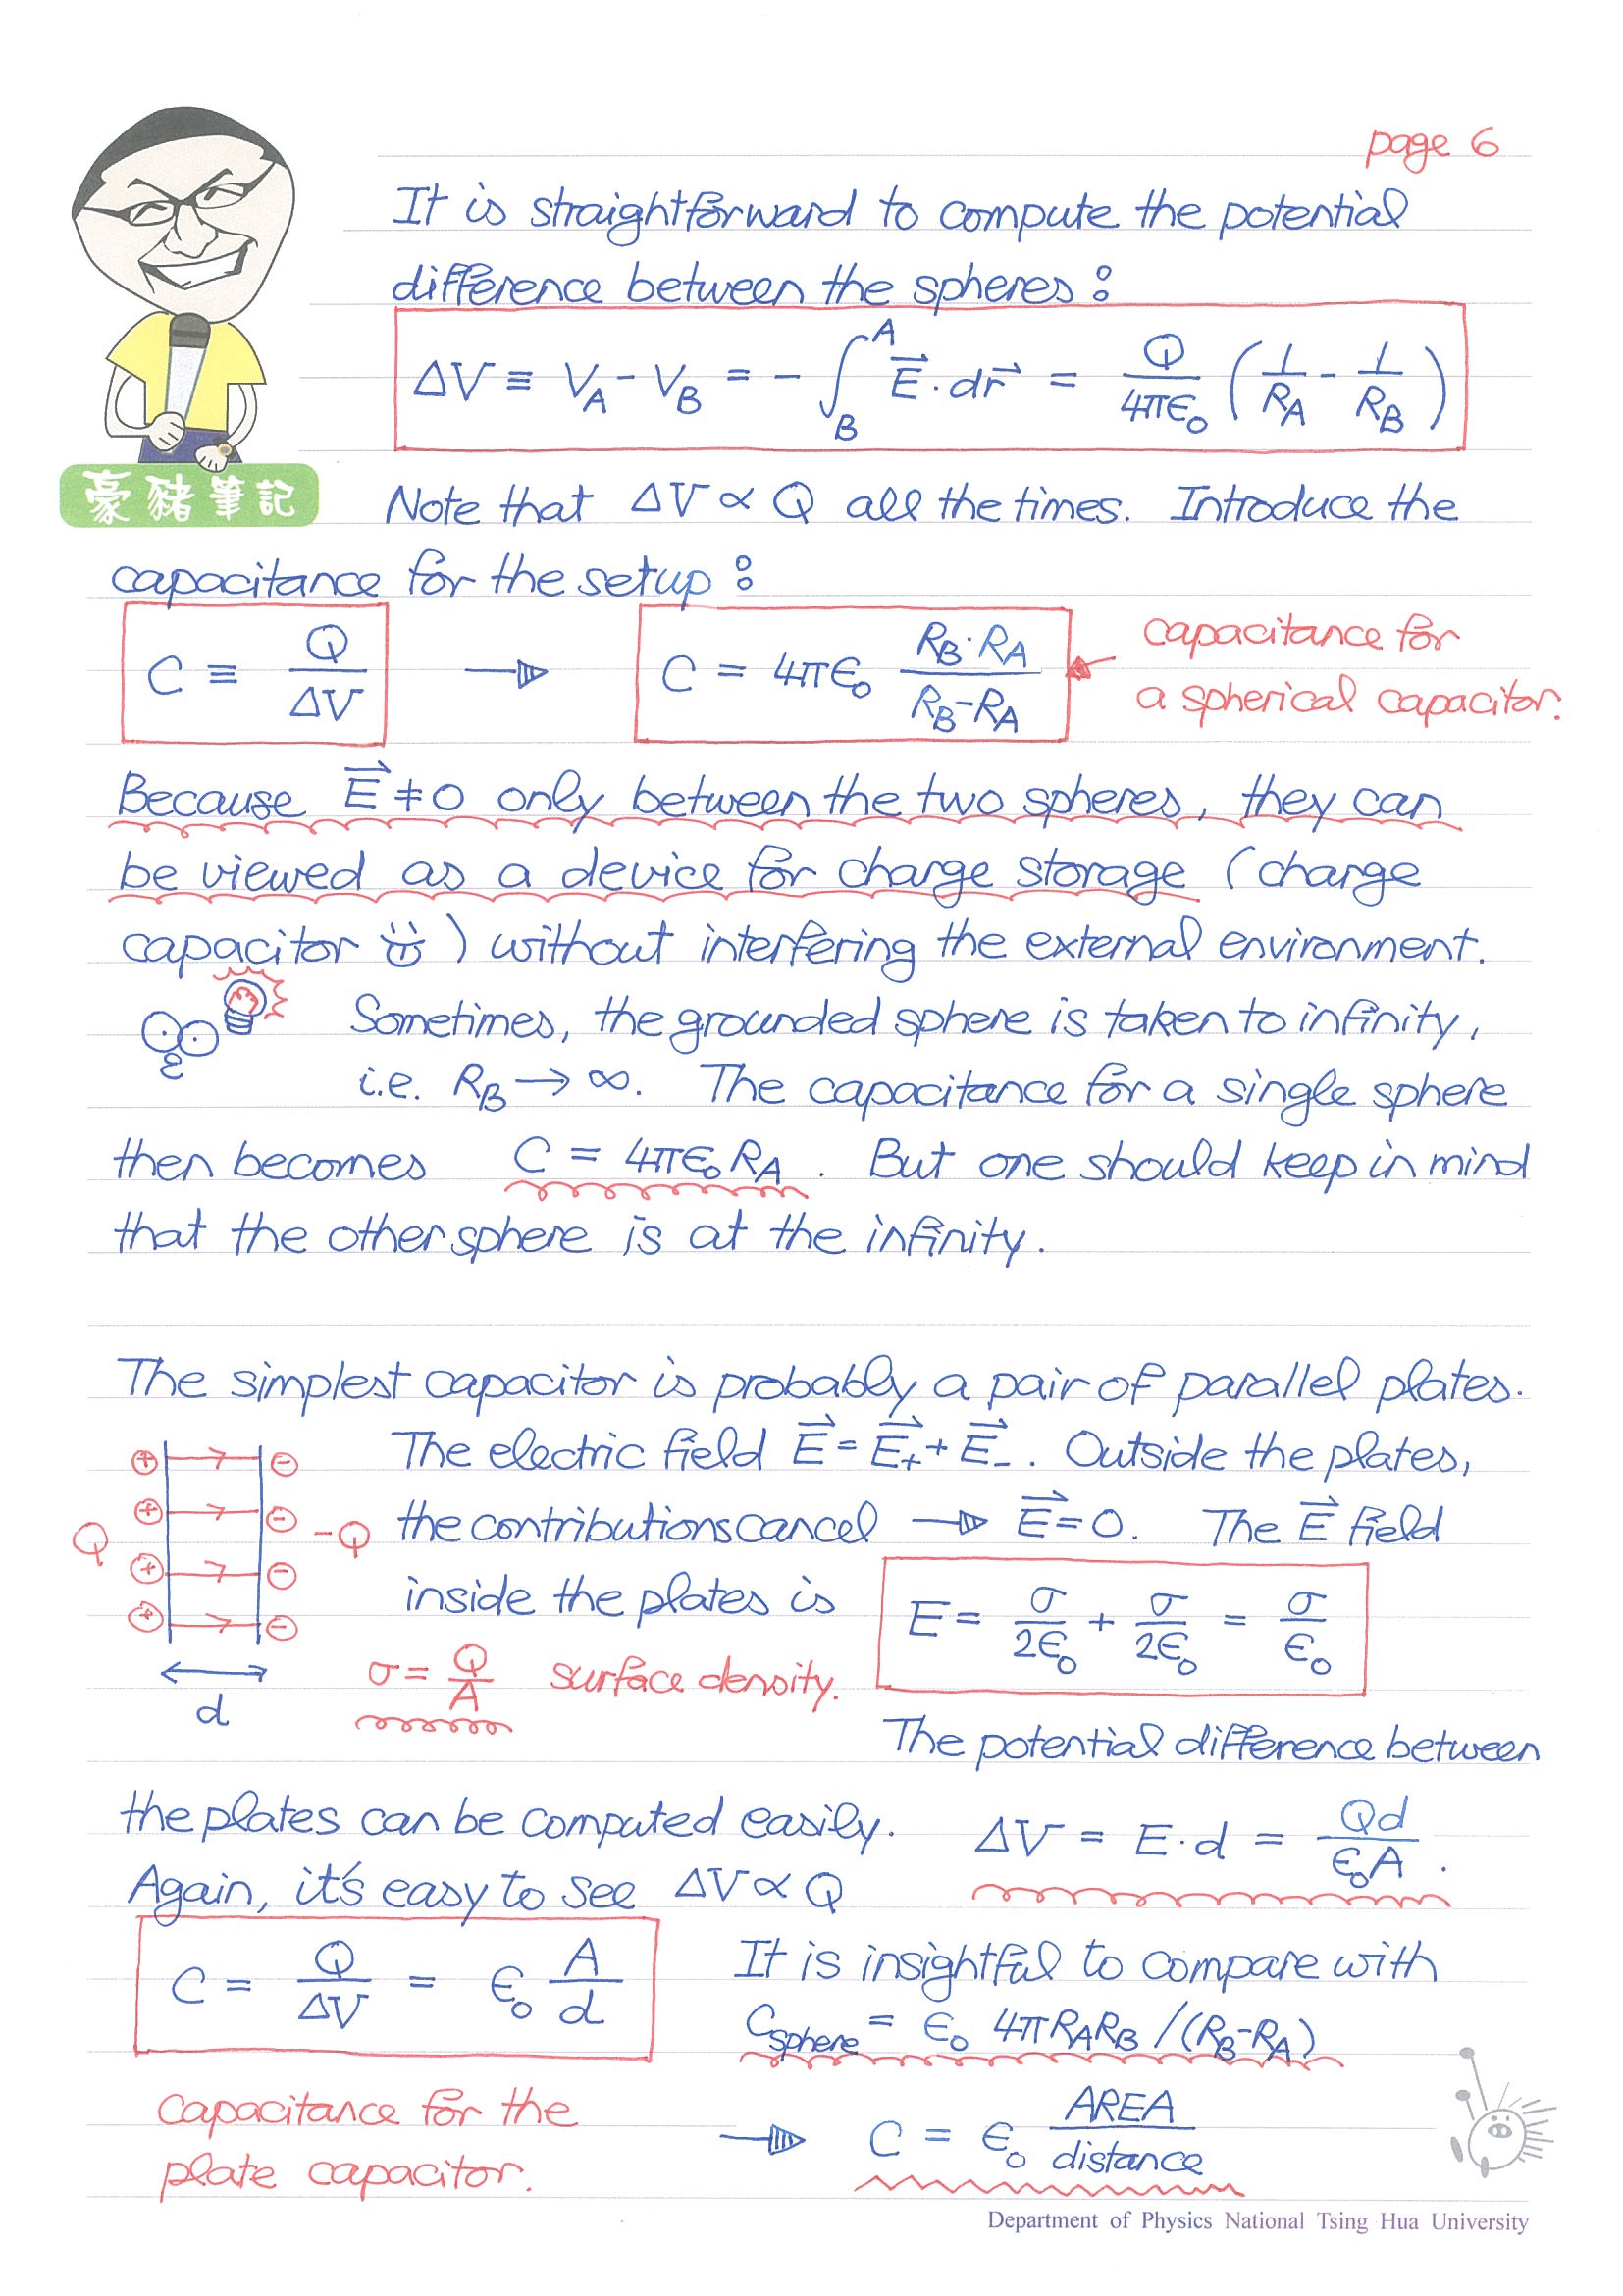 page 6
It is straightforward to compute the potential
difference between the spheres:
ΔV ≡ V_A - V_B = - ∫_B^A E⃗ · dr⃗ = Q/4πϵ₀ (1/R_A - 1/R_B)
豪豬筆記
Note that ΔV ∝ Q all the times. Introduce the
capacitance for the setup:
C ≡ Q/ΔV → C = 4πϵ₀ R_B·R_A/R_B-R_A
capacitance for
a spherical capacitor.
Because E⃗ ≠ 0 only between the two spheres, they can
be viewed as a device for charge storage (charge
capacitor ) without interfering the external environment.
Sometimes, the grounded sphere is taken to infinity,
i.e. R_B → ∞. The capacitance for a single sphere
then becomes C = 4πϵ₀ R_A. But one should keep in mind
that the other sphere is at the infinity.
The simplest capacitor is probably a pair of parallel plates.
The electric field E⃗ = E⃗₊ + E⃗₋. Outside the plates,
the contributions cancel → E⃗ = 0. The E⃗ field
inside the plates is E = σ/2ϵ₀ + σ/2ϵ₀ = σ/ϵ₀
+ -
+ -
Q -Q
+ -
+ -
d
σ = Q/A surface density.
The potential difference between
the plates can be computed easily. ΔV = E·d = Qd/ϵ₀A.
Again, it's easy to see ΔV ∝ Q
C = Q/ΔV = ϵ₀ A/d
Capacitance for the
plate capacitor.
It is insightful to compare with
C_sphere = ϵ₀ 4πR_AR_B/(R_B-R_A)
→ C = ϵ₀ AREA/distance
Department of Physics National Tsing Hua University